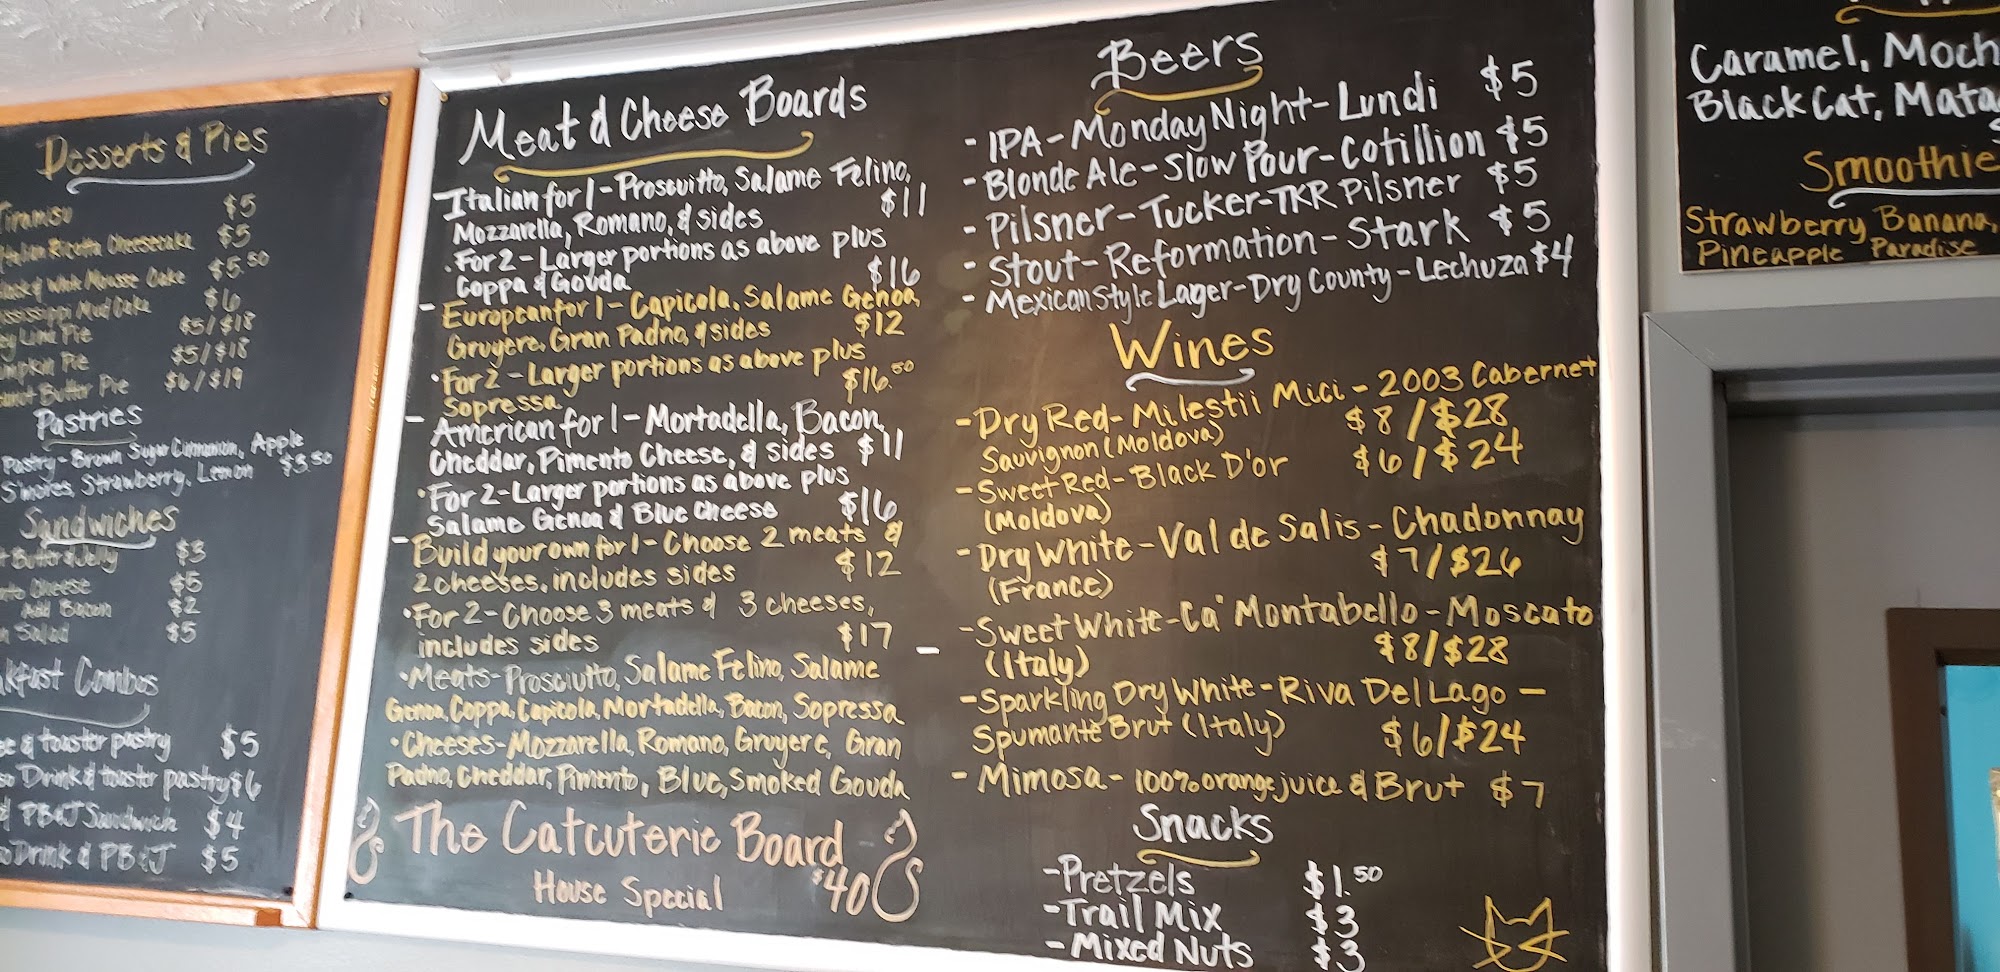 Desserts & Pies
Tiramisu $5
Italian Ricotta Cheesecake $5
& White Mousse Cake $5.50
Mississippi Mud Cake $6
Key Lime Pie $5/$18
Pumpkin Pie $5/$18
Peanut Butter Pie $6/$19
Pastries
Pastry - Brown Sugar Cinnamon, Apple
S'mores, Strawberry, Lemon $3.50
Sandwiches
Butter & Jelly $3
Cheese $5
Add Bacon $2
Salad $5
Combos
& toaster pastry $5
Drink & toaster pastry $6
PB&J Sandwich $4
Drink & PB&J $5
Meat & Cheese Boards
Italian for 1 - Proscuitto, Salame Felino,
Mozzarella, Romano, & sides $11
· For 2 - Larger portions as above plus
Coppa & Gouda $16
- European for 1 - Capicola, Salame Genoa,
Gruyere, Gran Padno, & sides $12
· For 2 - Larger portions as above plus
Sopressa $16.50
- American for 1 - Mortadella, Bacon,
Cheddar, Pimento Cheese, & sides $11
· For 2 - Larger portions as above plus
Salame Genoa & Blue Cheese $16
- Build your own for 1 - Choose 2 meats &
2 cheeses, includes sides $12
· For 2 - Choose 3 meats & 3 cheeses,
includes sides $17
· Meats - Prosciutto, Salame Felino, Salame
Genoa, Coppa, Capicola, Mortadella, Bacon, Sopressa
· Cheeses - Mozzarella, Romano, Gruyere, Gran
Padno, Cheddar, Pimento, Blue, Smoked Gouda
The Catcuterie Board
House Special $40
Beers
- IPA - Monday Night - Lundi $5
- Blonde Ale - Slow Pour - Cotillion $5
- Pilsner - Tucker - TKR Pilsner $5
- Stout - Reformation - Stark $5
- Mexican Style Lager - Dry County - Lechuza $4
Wines
- Dry Red - Milestii Mici - 2003 Cabernet
Sauvignon (Moldova) $8/$28
- Sweet Red - Black D'or $6/$24
(Moldova)
- Dry White - Val de Salis - Chadonnay
(France) $7/$26
- Sweet White - Ca' Montabello - Moscato
(Italy) $8/$28
- Sparkling Dry White - Riva Del Lago -
Spumante Brut (Italy) $6/$24
- Mimosa - 100% orange juice & Brut $7
Snacks
- Pretzels $1.50
- Trail Mix $3
- Mixed Nuts $3
Caramel, Moch
Black Cat, Mata
Smoothie
Strawberry Banana,
Pineapple Paradise